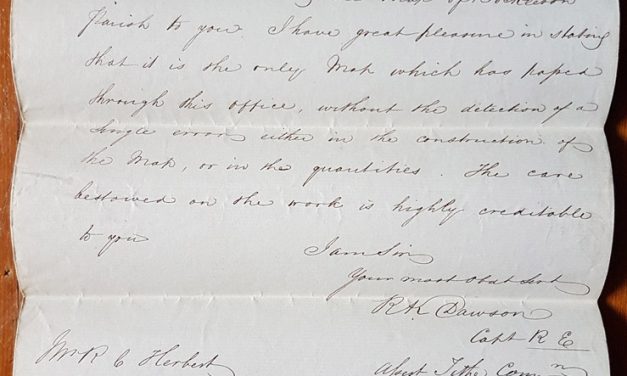 Map of
Parish to you. I have great pleasure in stating
that it is the only Map which has paſsed
through this office, without the detection of a
single error either in the construction of
the Map, or in the quantities. The care
bestowed on the work is highly creditable
to you
I am Sir
Your most obdt Servt
R K Dawson
Capt R E
Mr R C Herbert
Aſsist Tithe Commn